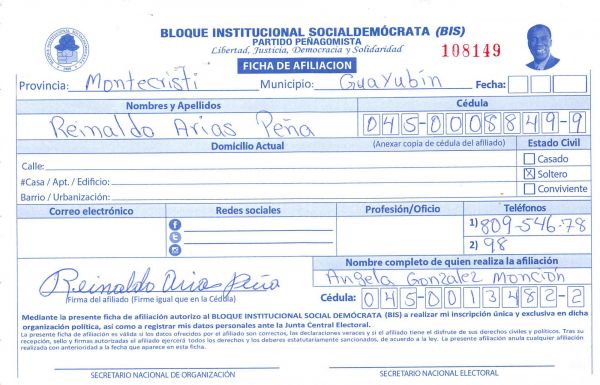 BLOQUE INSTITUCIONAL SOCIALDEMÓCRATA (BIS)
PARTIDO PEÑAGOMISTA
Libertad, Justicia, Democracia y Solidaridad
108149
FICHA DE AFILIACION
Provincia: Montecristi Municipio: Guayubín Fecha:
Nombres y Apellidos Cédula
Reinaldo Arias Peña 045-0008849-9
Domicilio Actual (Anexar copia de cédula del afiliado) Estado Civil
Calle: Casado
#Casa / Apt. / Edificio: X Soltero
Barrio / Urbanización: Conviviente
Correo electrónico Redes sociales Profesión/Oficio Teléfonos
1) 809-546-78
2) 98
Nombre completo de quien realiza la afiliación
Reinaldo Arias Peña Angela Gonzalez Monción
Firma del afiliado (Firme igual que en la Cédula) Cédula: 045-0013482-2
Mediante la presente ficha de afiliación autorizo al BLOQUE INSTITUCIONAL SOCIAL DEMÓCRATA (BIS) a realizar mi inscripción única y exclusiva en dicha
organización política, así como a registrar mis datos personales ante la Junta Central Electoral.
La presente ficha de afiliación es válida si los datos ofrecidos por el afiliado son correctos, las declaraciones veraces y si el afiliado tiene el disfrute de sus derechos civiles y políticos. Tras su
recepción, sello y firmas autorizadas el afiliado ejercerá todos los derechos y los deberes estatutariamente sancionados, de acuerdo a la ley. La presente afiliación anula cualquier afiliación
realizada con anterioridad a la fecha que aparece en esta ficha.
SECRETARIO NACIONAL DE ORGANIZACIÓN SECRETARIO NACIONAL ELECTORAL